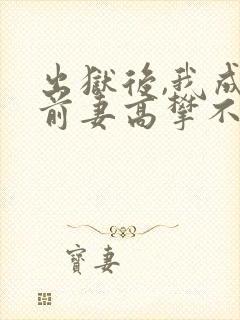 出獄後,我成
前妻高攀不
寶妻